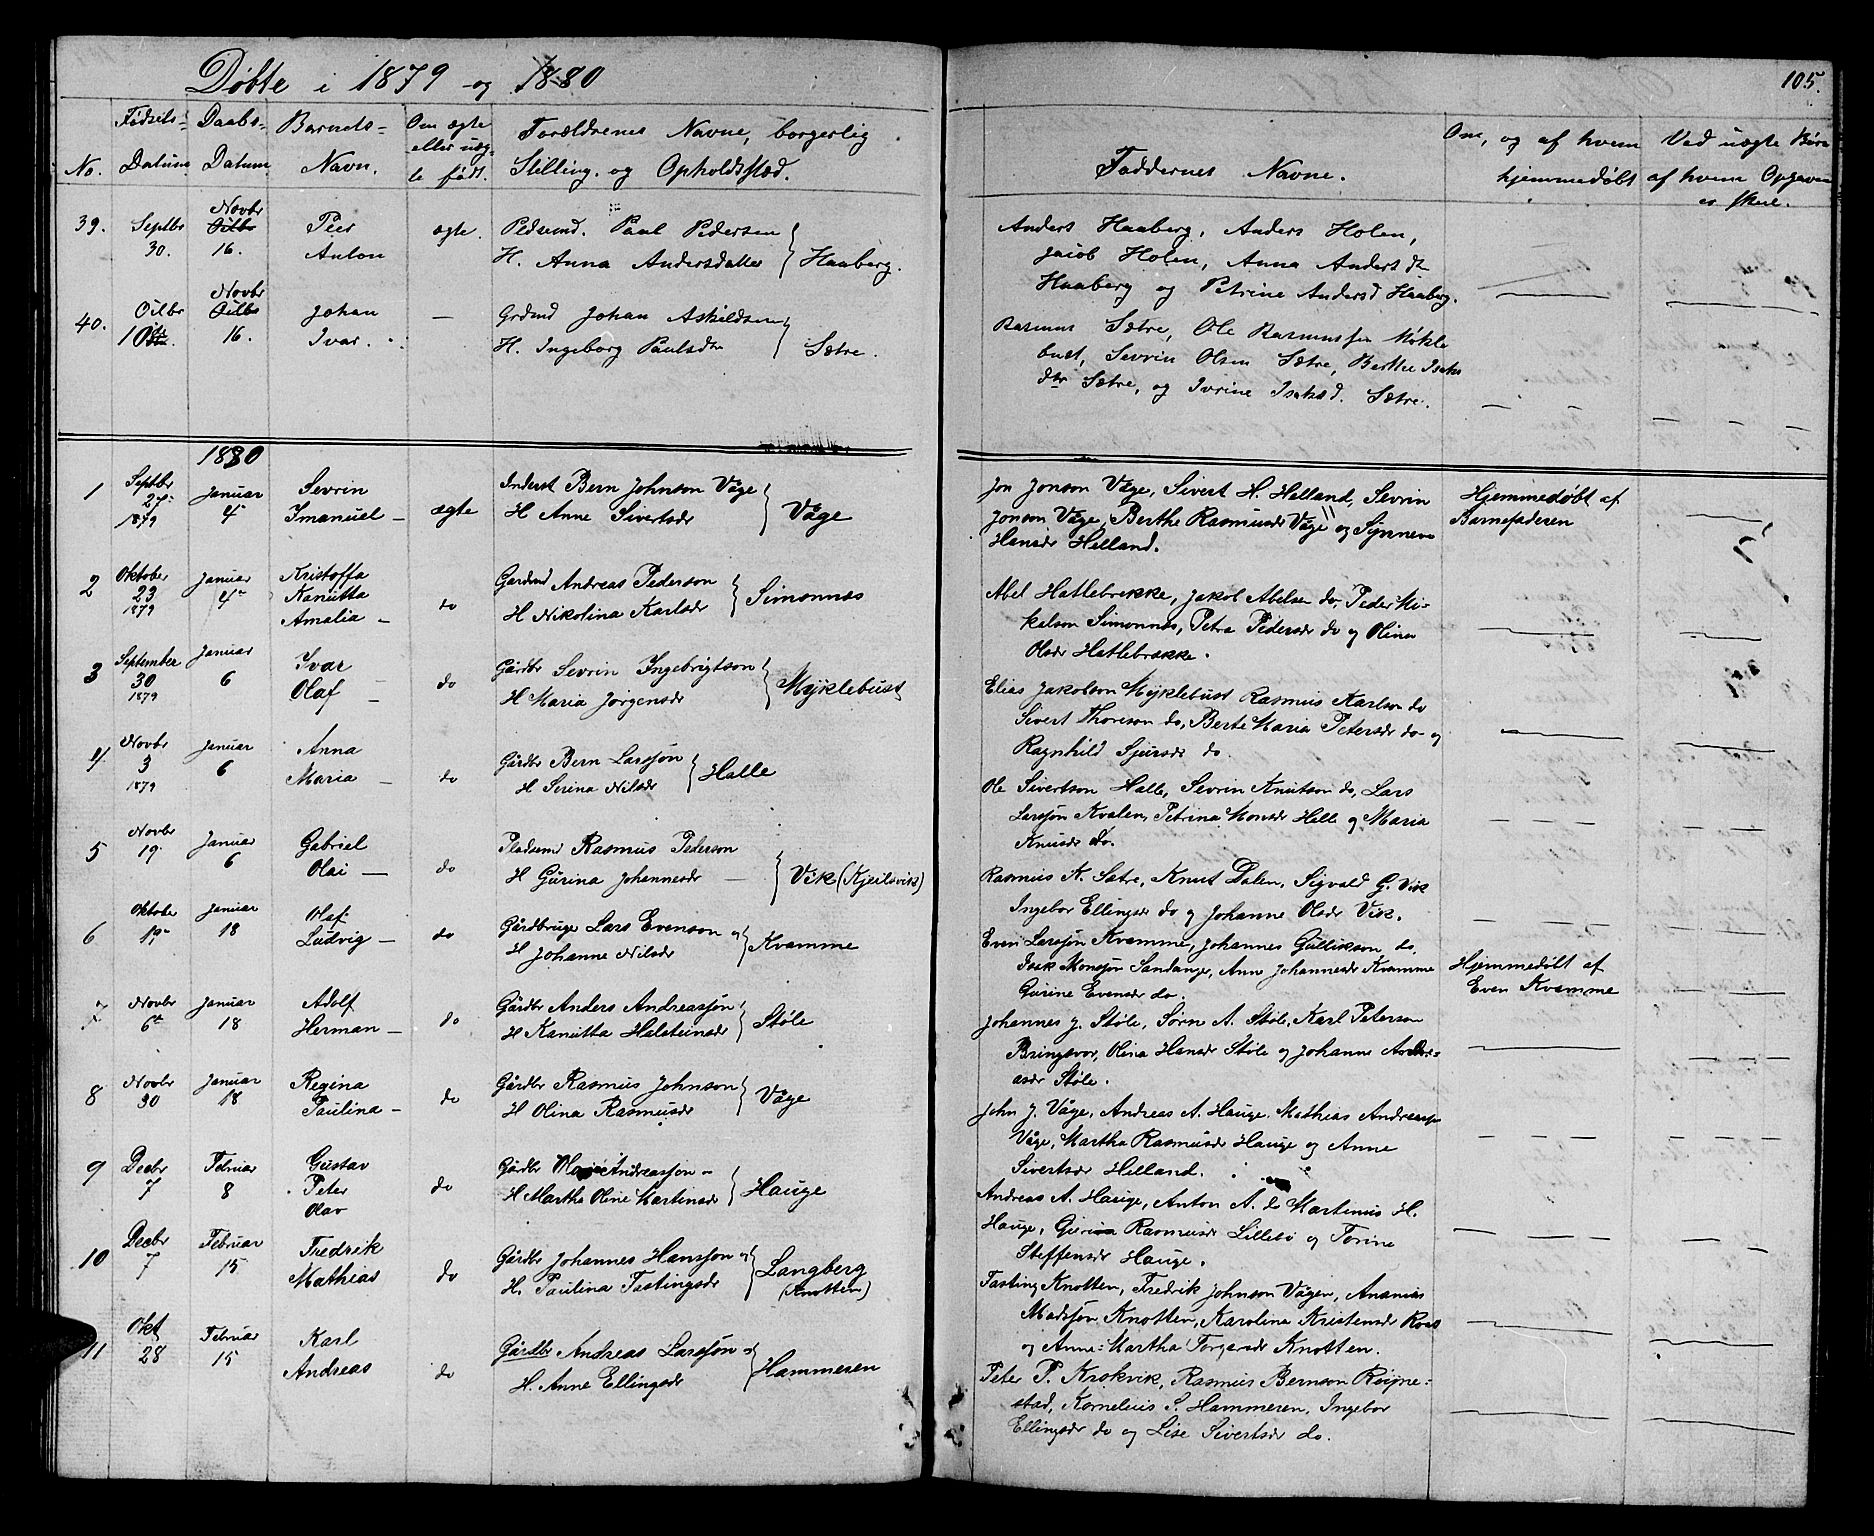 Døbte i 1879 og 1880
105.
No.
Fødsels-
Datum
Daabs-
Datum
Barnets-
Navn.
Om ægte
eller uæg-
te født.
Forældrenes Navne, borgerlig
Stilling. og Opholdssted.
Faddernes Navne.
Om, og af hvem
hjemmedøbt
Ved uægte Børn
af hvem Opgaven
er skeet.
39.
Septbr
30.
Novbr
Octbr
16.
Peer
Anton
ægte.
Pedsmd. Paul Pedersen
H. Anna Andersdatter } Haaberg.
Anders Haaberg, Anders Holen,
Jacob Holen, Anna Anders dtr
Haaberg og Petrine Andersd Haaberg.
40.
Octbr
10de
Novbr
Octbr
16.
Johan
Ivar.
—
Grdmd Johan Askildsen
H. Ingeborg Paulsdtr } Sætre.
Rasmus Sætre, Ole Rasmussen Møkle
bust, Sevrin Olsen Sætre, Berthe Isaks
dtr Sætre, og Ivrine Isaksd. Sætre.
1880
1
Septbr
27-
1879
Januar
4-
Sevrin
Imanuel -
ægte
Inderst Bern Johnson Våge
H Anne Sivertsdr } Våge
Jon Jonson Våge, Sivert H. Helland, Sevrin
Jonson Våge, Berthe Rasmusdr Våge og Synneve
Hansdr Helland.
Hjemmedøbt af
Barnefaderen
2
Oktober
23
1879
Januar
4-
Kristoffa
Kanutta
Amalia -
do
Gardmd Andreas Pederson
H Nikolina Karlsdr } Simonnes
Abel Hatlebrekke, Jakob Abelsen do, Peder Mi-
kelson Simonnes, Petra Pedersdr do og Olina
Olsdr Hatlebrekke.
3
September
30
1879
Januar
6
Ivar
Olaf -
do
Gårdbr Sevrin Ingebrigtson
H Maria Jørgensdr } Myklebust
Elias Jakobson Myklebust Rasmus Karlson do
Sivert Thoreson do, Berte Maria Petersdr do og
Ragnhild Sjursdr do.
4
Novbr
3
1879
Januar
6
Anna
Maria -
do
Gårdbr Bern Larssøn
H Serina Nilsdr } Halle
Ole Sivertson Halle, Sevrin Knutson do, Lars
Larssøn Kvalen, Petrina Monsdr Helle og Maria
Knusdr do.
5
Novbr
19.
Januar
6
Gabriel
Olai -
do
Pladsmd Rasmus Pederson
H Gurina Johannesdr - } Vik (Kjeilsvik)
Rasmus K. Satre, Knut Dalen, Sigvald G. Vik
Ingebor Ellingsdr do og Johanne Olsdr Vik.
6
Oktober
19-
Januar
18
Olaf
Ludvig -
do
Gårdbruger Lars Evenson og
H Johanne Nilsdr } Kvamme
Even Larssøn Kvamme, Johannes Gullikson do,
Isak Monsøn Sandanger, Ane Johannesdr Kvamme
Gurine Evensdr do.
Hjemmedøbt af
Even Kvamme
7
Novbr
6te
Januar
18
Adolf
Herman -
do
Gårdbr Anders Andreassøn
H Kanutta Halsteinsdr } Støle
Johannes J. Støle, Sørn A. Støle, Karl Peterson
Bringsvor, Olina Hansdr Støle og Johanne Andre-
asdr Støle.
8
Novbr
30
Januar
18
Regina
Paulina -
do
Gårdbr Rasmus Johnson
H Olina Rasmusdr } Våge
John J. Våge, Andreas A. Hauge. Mathias Andreassøn
Våge, Martha Rasmusdr Hauge og Anne
Sivertsdr Helland.
9
Decbr
7
Februar
8
Gustav
Peter
Olav
do
Gårdbr Andreassøn -
H Martha Oline Martinusdr } Hauge
Andreas A. Hauge, Anton A. do Martinus H.
Hauge, Gurina Rasmusdr Lillebø og Torine
Steffensdr Hauge.
10
Decbr
7
Februar
15
Fredrik
Mathias
do
Gårdbr Johannes Hanssøn og
H. Paulina Tastingsdr } Langberg
(Knotten)
Tasting Knotten, Fredrik Johnson Vågen, Ananias
Madssøn Knotten, Karolina Kristensdr
og Anne-Martha Torgersdr Knotten.
11
Okt
28
Februar
15
Karl
Andreas
do
Gårdbr Andreas Larssøn -
H. Anne Ellingsdr } Hammeren
Peter P. Krokvik, Rasmus Bernson Røgne-
stad, Kornelius S. Hammeren, Ingebor
Ellingsdr do og Lise Sivertsdr do.